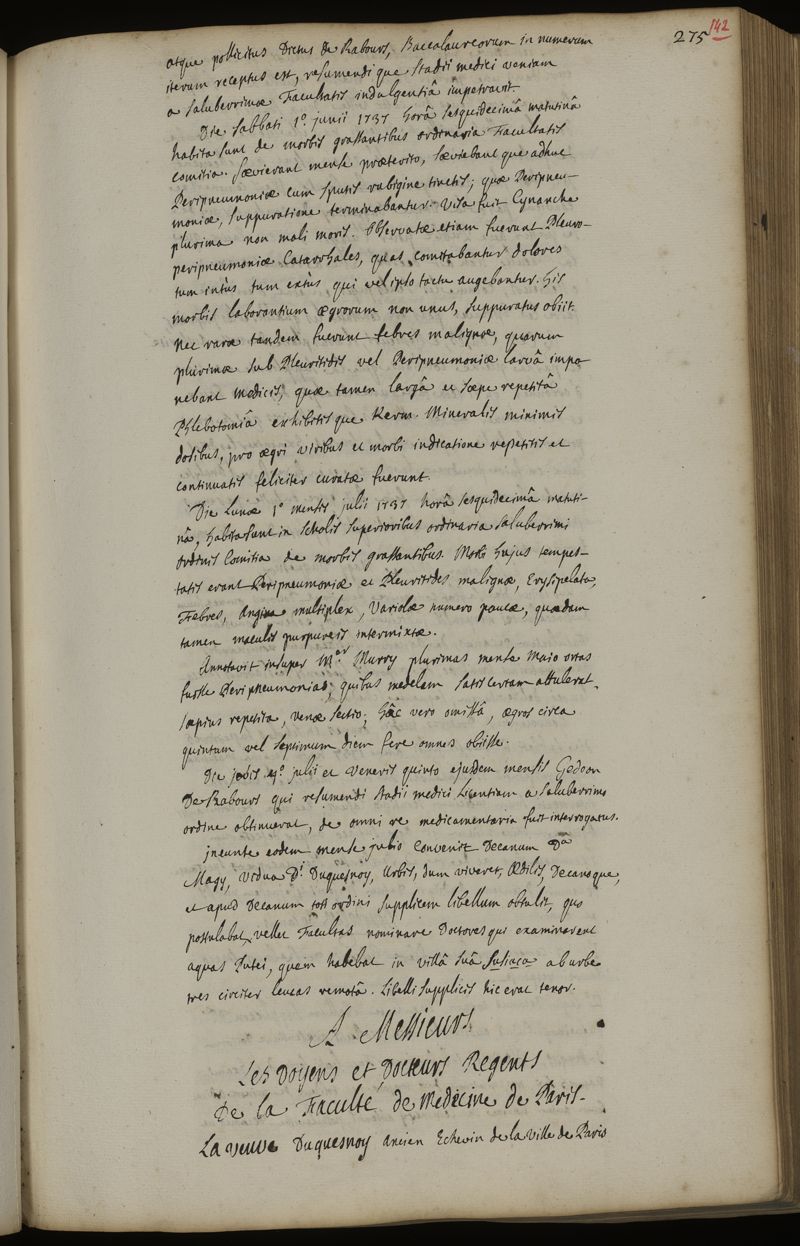 275 142
atque pollicitus Dictus de Rabours, Baccalaureorum in numerum
iterum receptus est, resumendi que stadii medici veniam
a saluberrimae Facultatis indulgentiâ impetravit.
Die sabbati 1.° junii 1737 horâ sesquidecimâ matutinâ
habita sunt de morbis grassantibus ordinaria Facultatis
comitia. saevierant mense praeterito, saeviebant que adhuc
Peripneumoniae cum sputis rubigine tinctis; quae Peripneu-
moniae, suppuratione terminabantur. Visa fuit Cynanche
plurima non mali moris. Observatae etiam fuerunt Pleuro-
peripneumoniae Catarrhales, quas comitabantur dolores
tum intùs tum extùs qui vel ipso tactu augebantur. his
morbis laborantium aegrorum non unus, suppuratus obiit.
Nec rarae tandem fuerunt febres malignae, quarum
plurimae sub Pleuritidis vel Peripneumoniae larvâ impo-
nebant medicis; quae tamen largâ et saepe repetitâ
Phlebotomiâ exhibitisque Kerm. Mineralis minimis
dosibus, pro aegri viribus et morbi indicatione repetitis et
continuatis feliciter curatae fuerunt.
Die Lunae 1° mensis julii 1737 horâ sesquidecimâ matuti-
nâ, habita sunt in scholis superioribus ordinaria saluberrimi
ordinis Comitia de morbis grassantibus. Morbi hujus tempes-
tatis erant Peripneumoniae et Pleuritides malignae, Erysipelata,
Febres, Angina multiplex, Variolae numero paucae, quaedam
tamen maculis purpureis intermixtae.
Annotavit insuper M.er Murry plurimas mense Maio ortas
fuisse Peripneumonias; quibus medelam satis certam attulerat
saepius repetita, venae sectio; hâc vero omissâ, aegros circa
quintum vel septimum diem fere omnes obiisse.
Die jovis 4.° julii et Veneris quinto ejusdem mensis Gedeon
De Rabours qui resumendi stadii medici Licentiam a saluberrimo
ordine obtinuerat, de omni re medicamentaria fuit interrogatus.
jneunte eodem mense julio Convenit Decanum Da
Magy, Vidua Di Duquesnoy, Urbis, dum viveret, Ædilis, Decanoque,
et apud Decanum toti ordini supplicem libellum obtulit, quo
postulabat vellet Facultas nominare Doctores qui examinarent
aquas Putei, quem habebat in villâ suâ ab urbe
tres circiter leucas remotâ. Libelli supplicis hic erat tenor.
A Messieurs
Les Doyens et Docteurs Regents
De la Faculté de Medecine de Paris.
La veuve Duquesnoy Ancien Echevin de la Ville de Paris